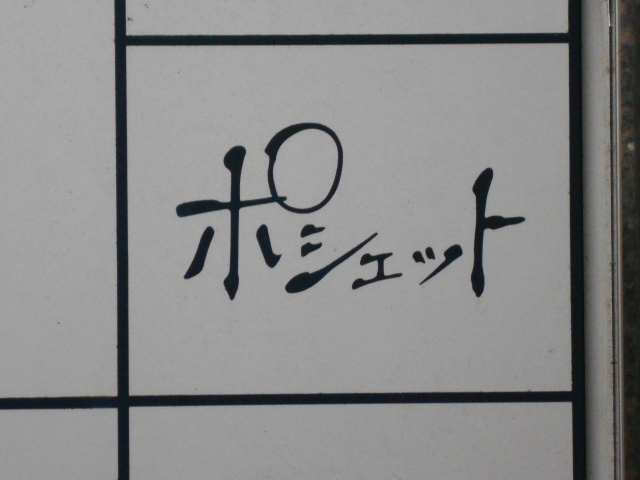 ポシェット